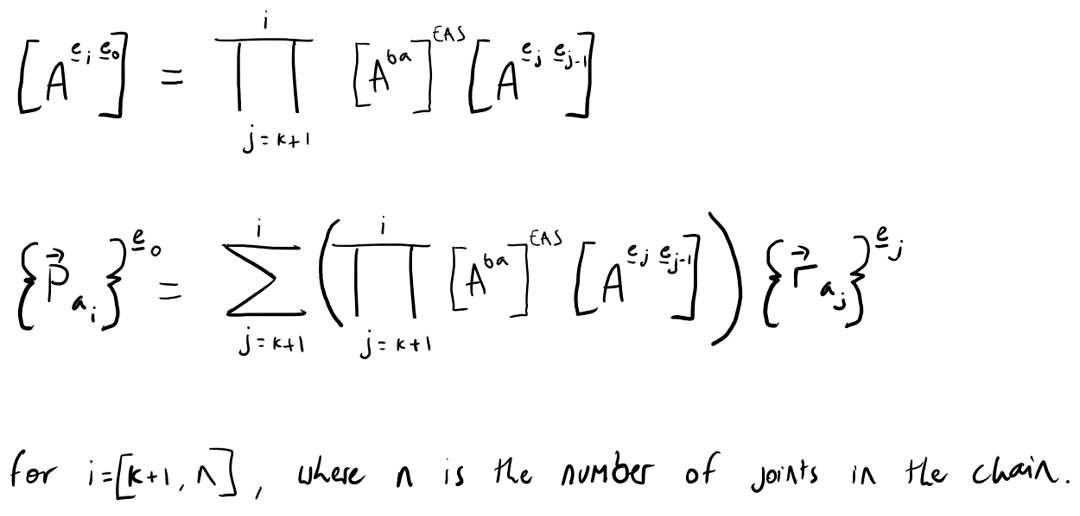 [A^{e̲_i e̲_0}] = ∏_{j=k+1}^{i} [A^{ba}]^{EAS} [A^{e̲_j e̲_{j-1}}]
{\vec{P}_{a_i}}^{e̲_0} = ∑_{j=k+1}^{i} ( ∏_{j=k+1}^{i} [A^{ba}]^{EAS} [A^{e̲_j e̲_{j-1}}] ) {\vec{r}_{a_j}}^{e̲_j}
for i=[k+1, n], where n is the number of joints in the chain.